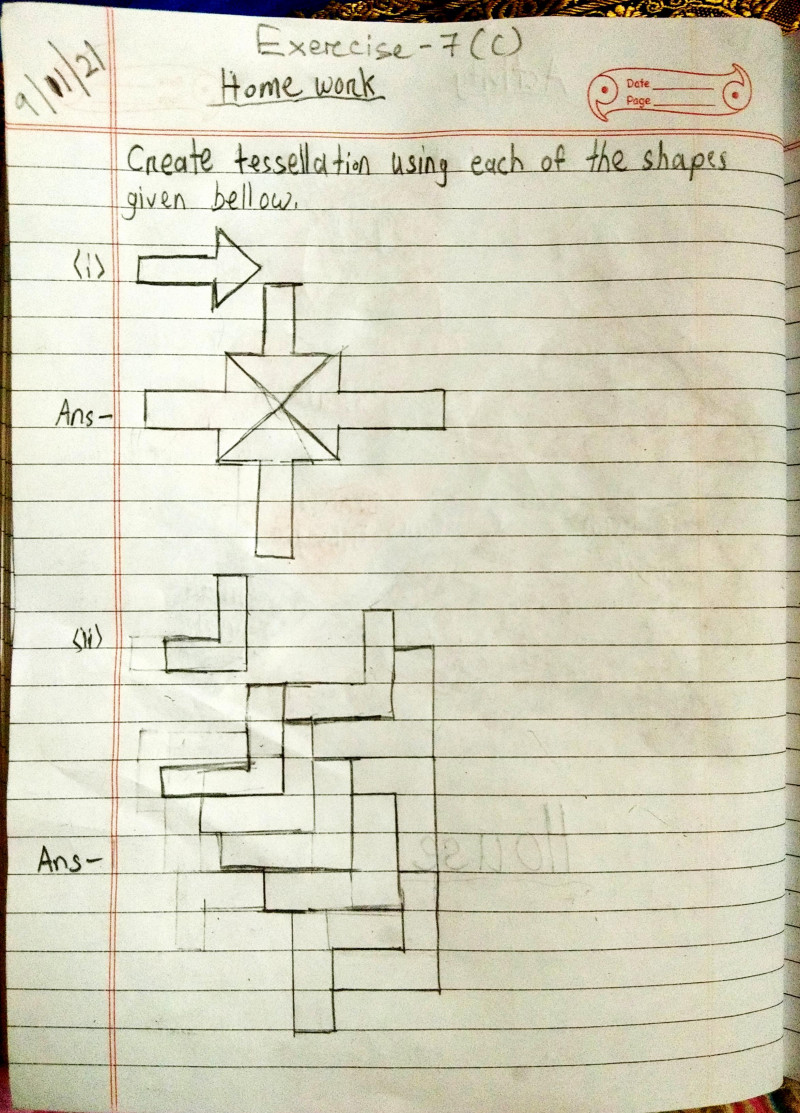 Exercise - 7 (C)
9/11/21
Home work
Date
Page
Create tessellation using each of the shapes
given bellow.
(i)
Ans-
(ii)
Ans-